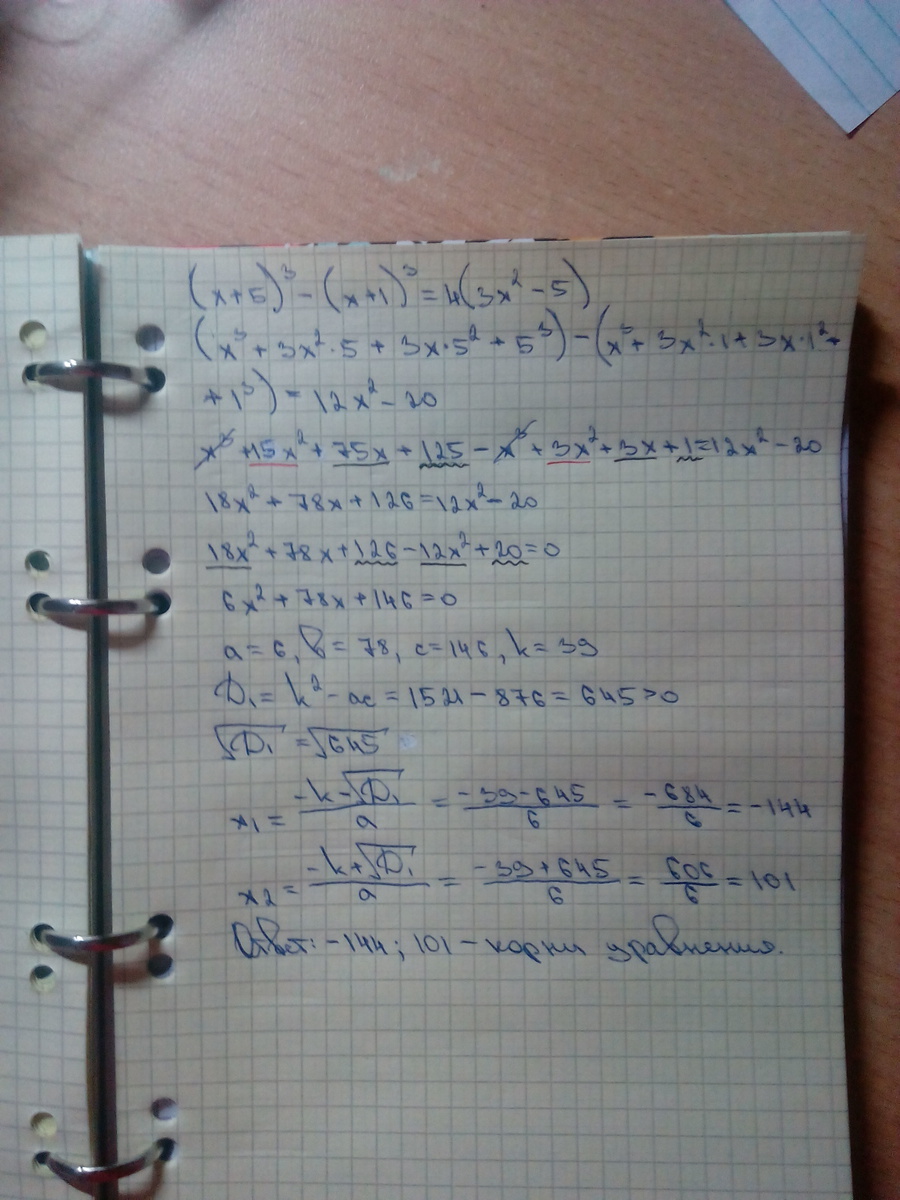 (x+5)³ - (x+1)³ = 4(3x² - 5)
(x³ + 3x²·5 + 3x·5² + 5³) - (x³ + 3x²·1 + 3x·1² +
+ 1³) = 12x² - 20
x³ + 15x² + 75x + 125 - x³ + 3x² + 3x + 1 = 12x² - 20
18x² + 78x + 126 = 12x² - 20
18x² + 78x + 126 - 12x² + 20 = 0
6x² + 78x + 146 = 0
a = 6, b = 78, c = 146, k = 39
D₁ = k² - ac = 1521 - 876 = 645 > 0
√D₁ = √645
x₁ = (-k - √D₁)/a = (-39 - 645)/6 = -684/6 = -144
x₂ = (-k + √D₁)/a = (-39 + 645)/6 = 606/6 = 101
Ответ: -144; 101 - корни уравнения.